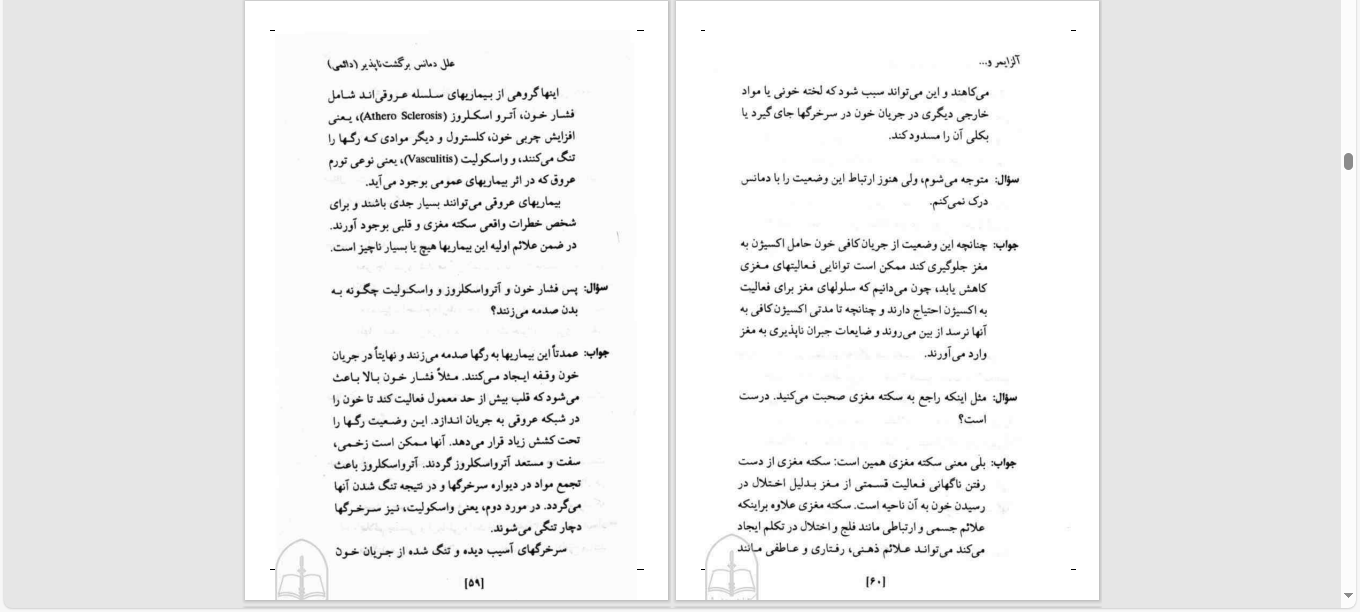 علل دمانس برگشت‌ناپذیر (دائمی)
اینها گروهی از بیماریهای سلسله عروقی‌اند شامل
فشار خون، آترو اسکلروز (Athero Sclerosis)، یعنی
افزایش چربی خون، کلسترول و دیگر موادی که رگها را
تنگ می‌کنند، و واسکولیت (Vasculitis)، یعنی نوعی تورم
عروق که در اثر بیماریهای عمومی بوجود می‌آید.
بیماریهای عروقی می‌توانند بسیار جدی باشند و برای
شخص خطرات واقعی سکته مغزی و قلبی بوجود آورند.
در ضمن علائم اولیه این بیماریها هیچ یا بسیار ناچیز است.
سؤال: پس فشار خون و آترواسکلروز و واسکولیت چگونه به
بدن صدمه می‌زنند؟
جواب: عمدتاً این بیماریها به رگها صدمه می‌زنند و نهایتاً در جریان
خون وقفه ایجاد می‌کنند. مثلاً فشار خون بالا باعث
می‌شود که قلب بیش از حد معمول فعالیت کند تا خون را
در شبکه عروقی به جریان اندازد. این وضعیت رگها را
تحت کشش زیاد قرار می‌دهد. آنها ممکن است زخمی،
سفت و مستعد آترواسکلروز گردند. آترواسکلروز باعث
تجمع مواد در دیواره سرخرگها و در نتیجه تنگ شدن آنها
می‌گردد. در مورد دوم، یعنی واسکولیت، نیز سرخرگها
دچار تنگی می‌شوند.
سرخرگهای آسیب دیده و تنگ شده از جریان خون
[۵۹]
آلزایمر و...
می‌کاهند و این می‌تواند سبب شود که لخته خونی یا مواد
خارجی دیگری در جریان خون در سرخرگها جای گیرد یا
بکلی آن را مسدود کند.
سؤال: متوجه می‌شوم، ولی هنوز ارتباط این وضعیت را با دمانس
درک نمی‌کنم.
جواب: چنانچه این وضعیت از جریان کافی خون حامل اکسیژن به
مغز جلوگیری کند ممکن است توانایی فعالیتهای مغزی
کاهش یابد، چون می‌دانیم که سلولهای مغز برای فعالیت
به اکسیژن احتیاج دارند و چنانچه تا مدتی اکسیژن کافی به
آنها نرسد از بین می‌روند و ضایعات جبران ناپذیری به مغز
وارد می‌آورند.
سؤال: مثل اینکه راجع به سکته مغزی صحبت می‌کنید. درست
است؟
جواب: بلی معنی سکته مغزی همین است: سکته مغزی از دست
رفتن ناگهانی فعالیت قسمتی از مغز بدلیل اختلال در
رسیدن خون به آن ناحیه است. سکته مغزی علاوه براینکه
علائم جسمی و ارتباطی مانند فلج و اختلال در تکلم ایجاد
می‌کند می‌تواند علائم ذهنی، رفتاری و عاطفی مانند
[۶۰]